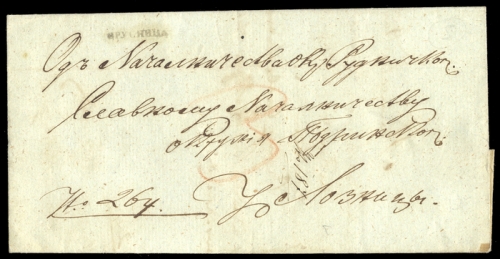 БРУСНИЦА
Одъ Началничества окр. Руднич
Славному Началничеству
окружія Подринско
№ 264.
У Лозницы.